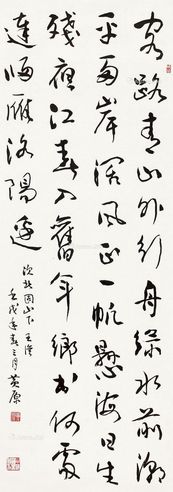 客路青山外行舟綠水前潮
平兩岸闊風正一帆懸海日生
殘夜江春入舊年鄉書何處
達歸雁洛陽邊
次北固山下王灣
壬戌春三月黃原